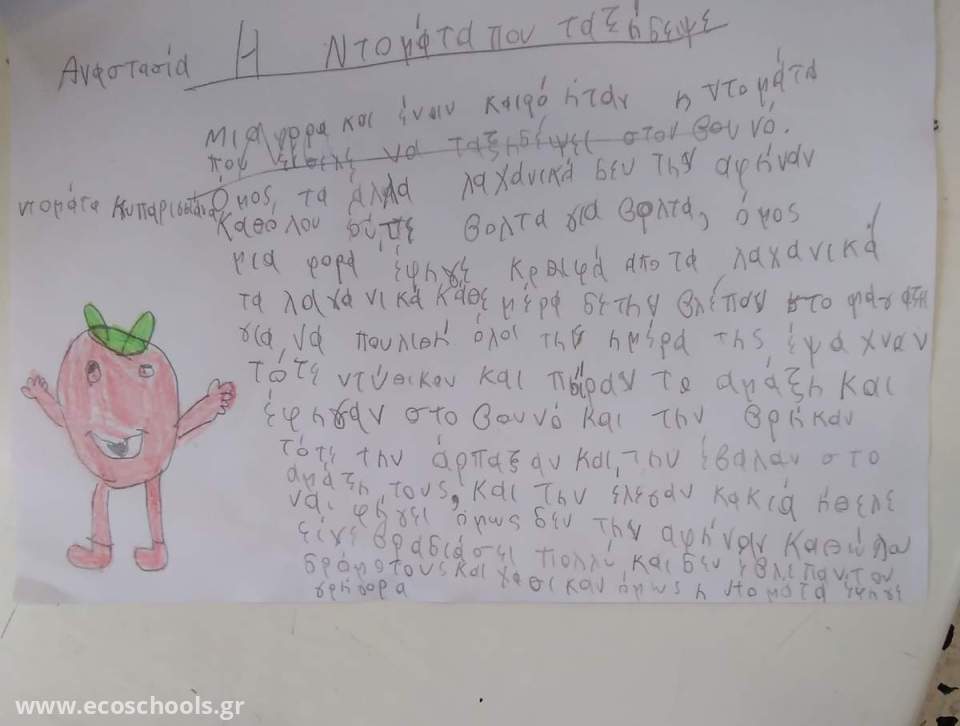 Αναστασία Η Ντομάτα που ταξήδεψε
Μια φορα και έναν καιρό ήταν η ντομάτα
που ήθελε να ταξηδέψει στον βουνό.
ντομάτα Κυπαρισσία
Όμος, τα άλλα λαχάνικά δεν την αφήναν
καθόλου ούτε βολτα για βολτα, όμος
μια φορά έφηγε κρθιφά απο τα λαχανικά
τα λαχανικά κάθε μέρα δετην βλέπαν στο
για να πουλιθή όλοι την ημέρα της έψαχναν
τότε ντύθικαν και πήραν το αμάξη και
έφηγαν στο βουνό και την βρήκαν
τότε την άρπαξαν και την έβαλαν στο
αμάξη τους, και την έλεσαν κακιά ήθελε
να φήγει όμως δεν την αφήναν καθώλου
είχε βραδιάσει πολλύ και δεν έβλιπαν του
δρόμο τους και χαθικαν όμως η ντοματα έφηγε
γρήγορα
www.ecoschools.gr